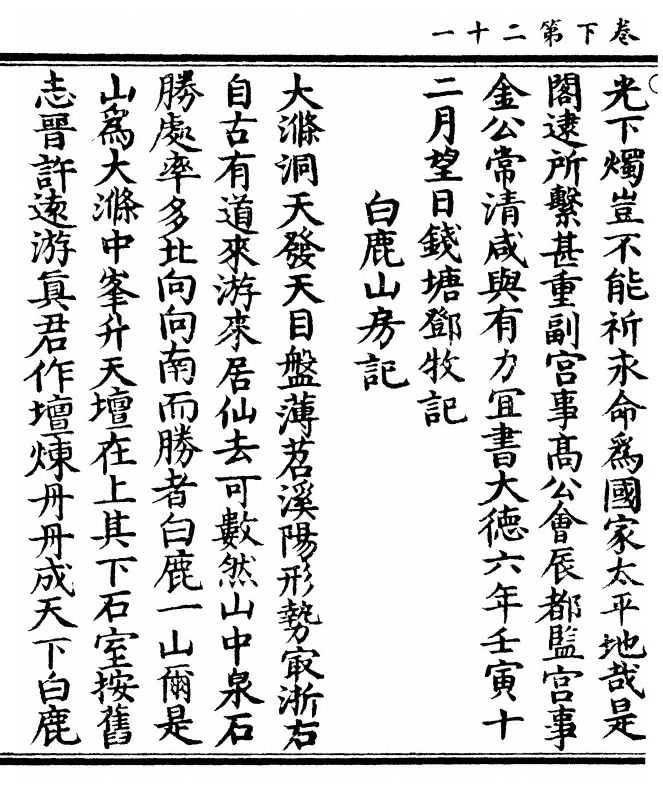 卷下第二十一
光下燭豈不能祈永命爲國家太平地哉是
閣逮所繫甚重副宫事髙公會辰都監宫事
金公常清咸與有力冝書大德六年壬寅十
二月望日錢塘鄧牧記
白鹿山房記
大滌洞天發天目盤薄苕溪陽形勢㝡浙右
自古有道來游來居仙去可數然山中泉石
勝處率多北向向南而勝者白鹿一山爾是
山爲大滌中峯升天壇在上其下石室按舊
志晉許遠游眞君作壇煉丹丹成天下白鹿